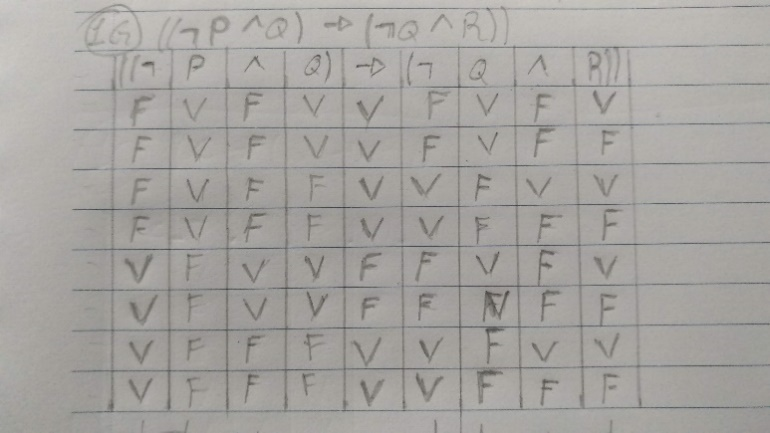 1G) ((¬P ∧ Q) → (¬Q ∧ R))
((¬ P ∧ Q) → (¬ Q ∧ R))
F V F V V F V F V
F V F V V F V F F
F V F F V V F V V
F V F F V V F F F
V F V V F F V F V
V F V V F F V F F
V F F F V V F V V
V F F F V V F F F